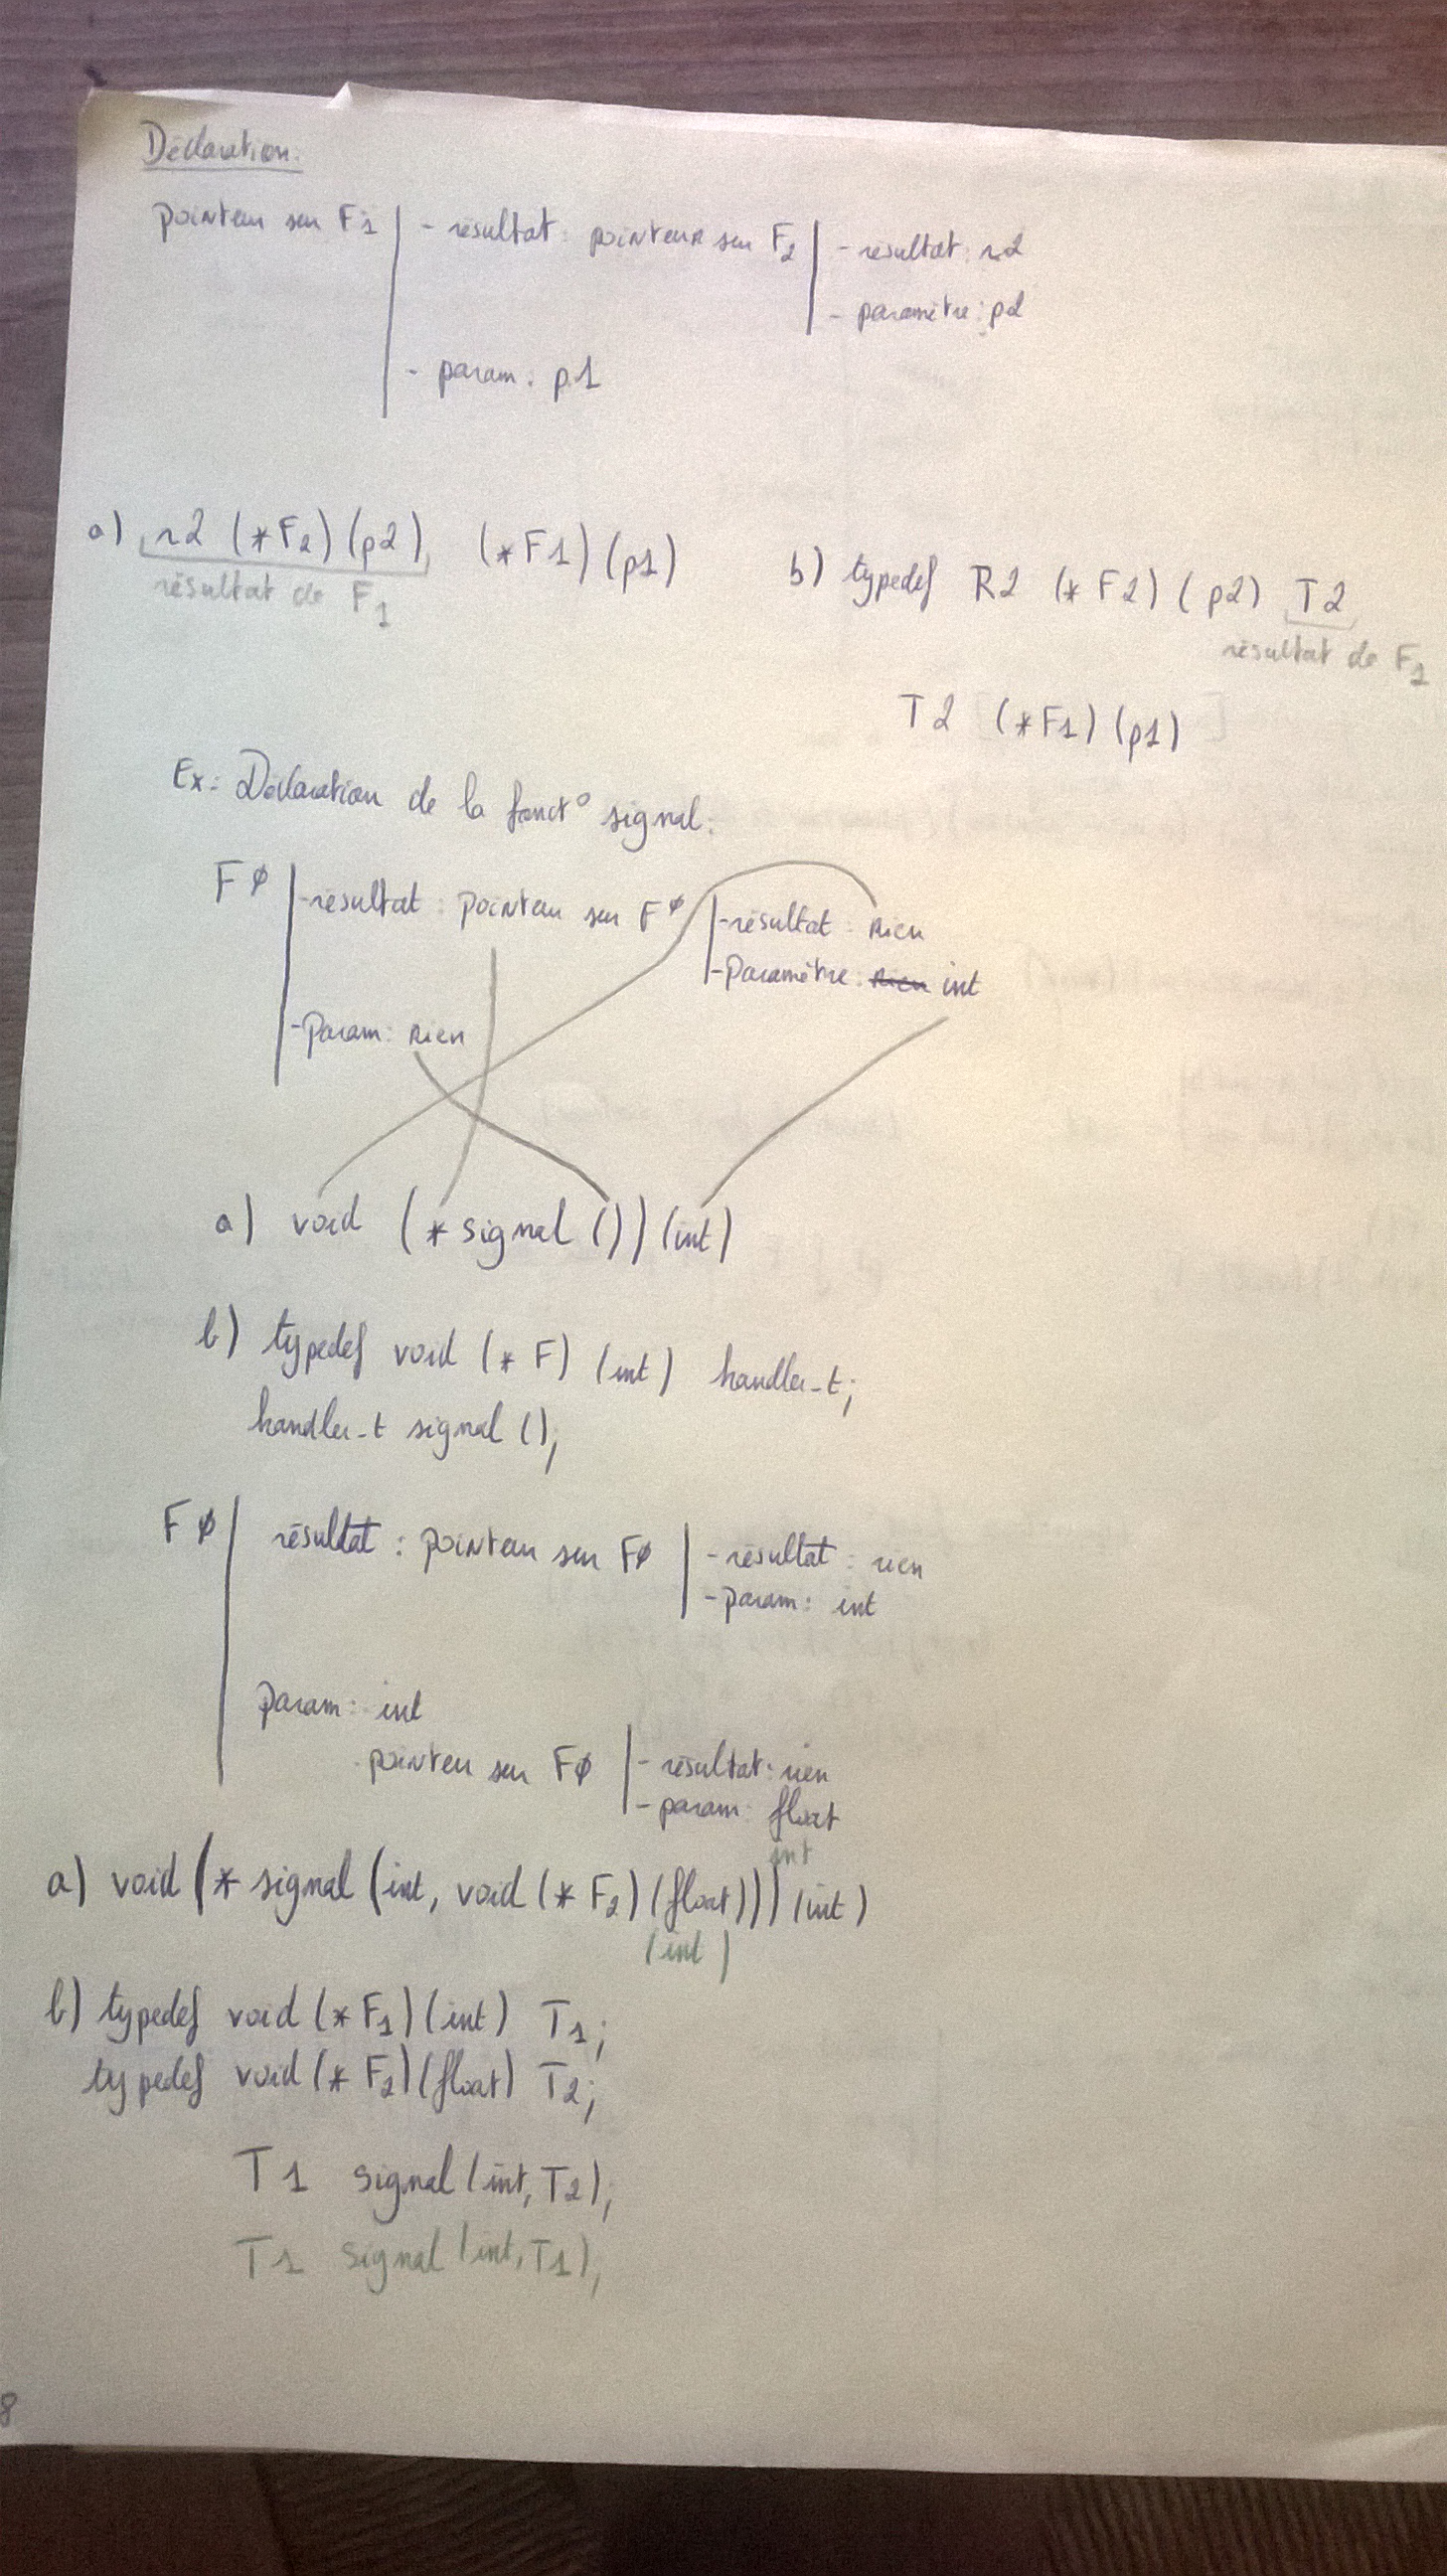 Déclaration:
pointeur sur F1 | - résultat : pointeur sur F2 | - résultat : r2
- paramètre : p2
- param : p1
a) r2 (*F2) (p2) (*F1) (p1)
résultat de F1
b) typedef R2 (* F2) (p2) T2
résultat de F1
T2 (*F1) (p1)
Ex: Déclaration de la fonct° signal:
Fø | - résultat : pointeur sur Fø | - résultat : rien
- Paramètre : rien int
- Param : rien
a) void (* signal ()) (int)
b) typedef void (* F) (int) handler_t;
handler_t signal ();
Fø | résultat : pointeur sur Fø | - résultat : rien
- param : int
param : int
pointeu sur Fø | - résultat : rien
- param : float
int
a) void (* signal (int, void (* F2) (float))) (int)
(int)
b) typedef void (* F1) (int) T1;
typedef void (* F2) (float) T2;
T1 signal (int, T2);
T1 signal (int, T1);
8